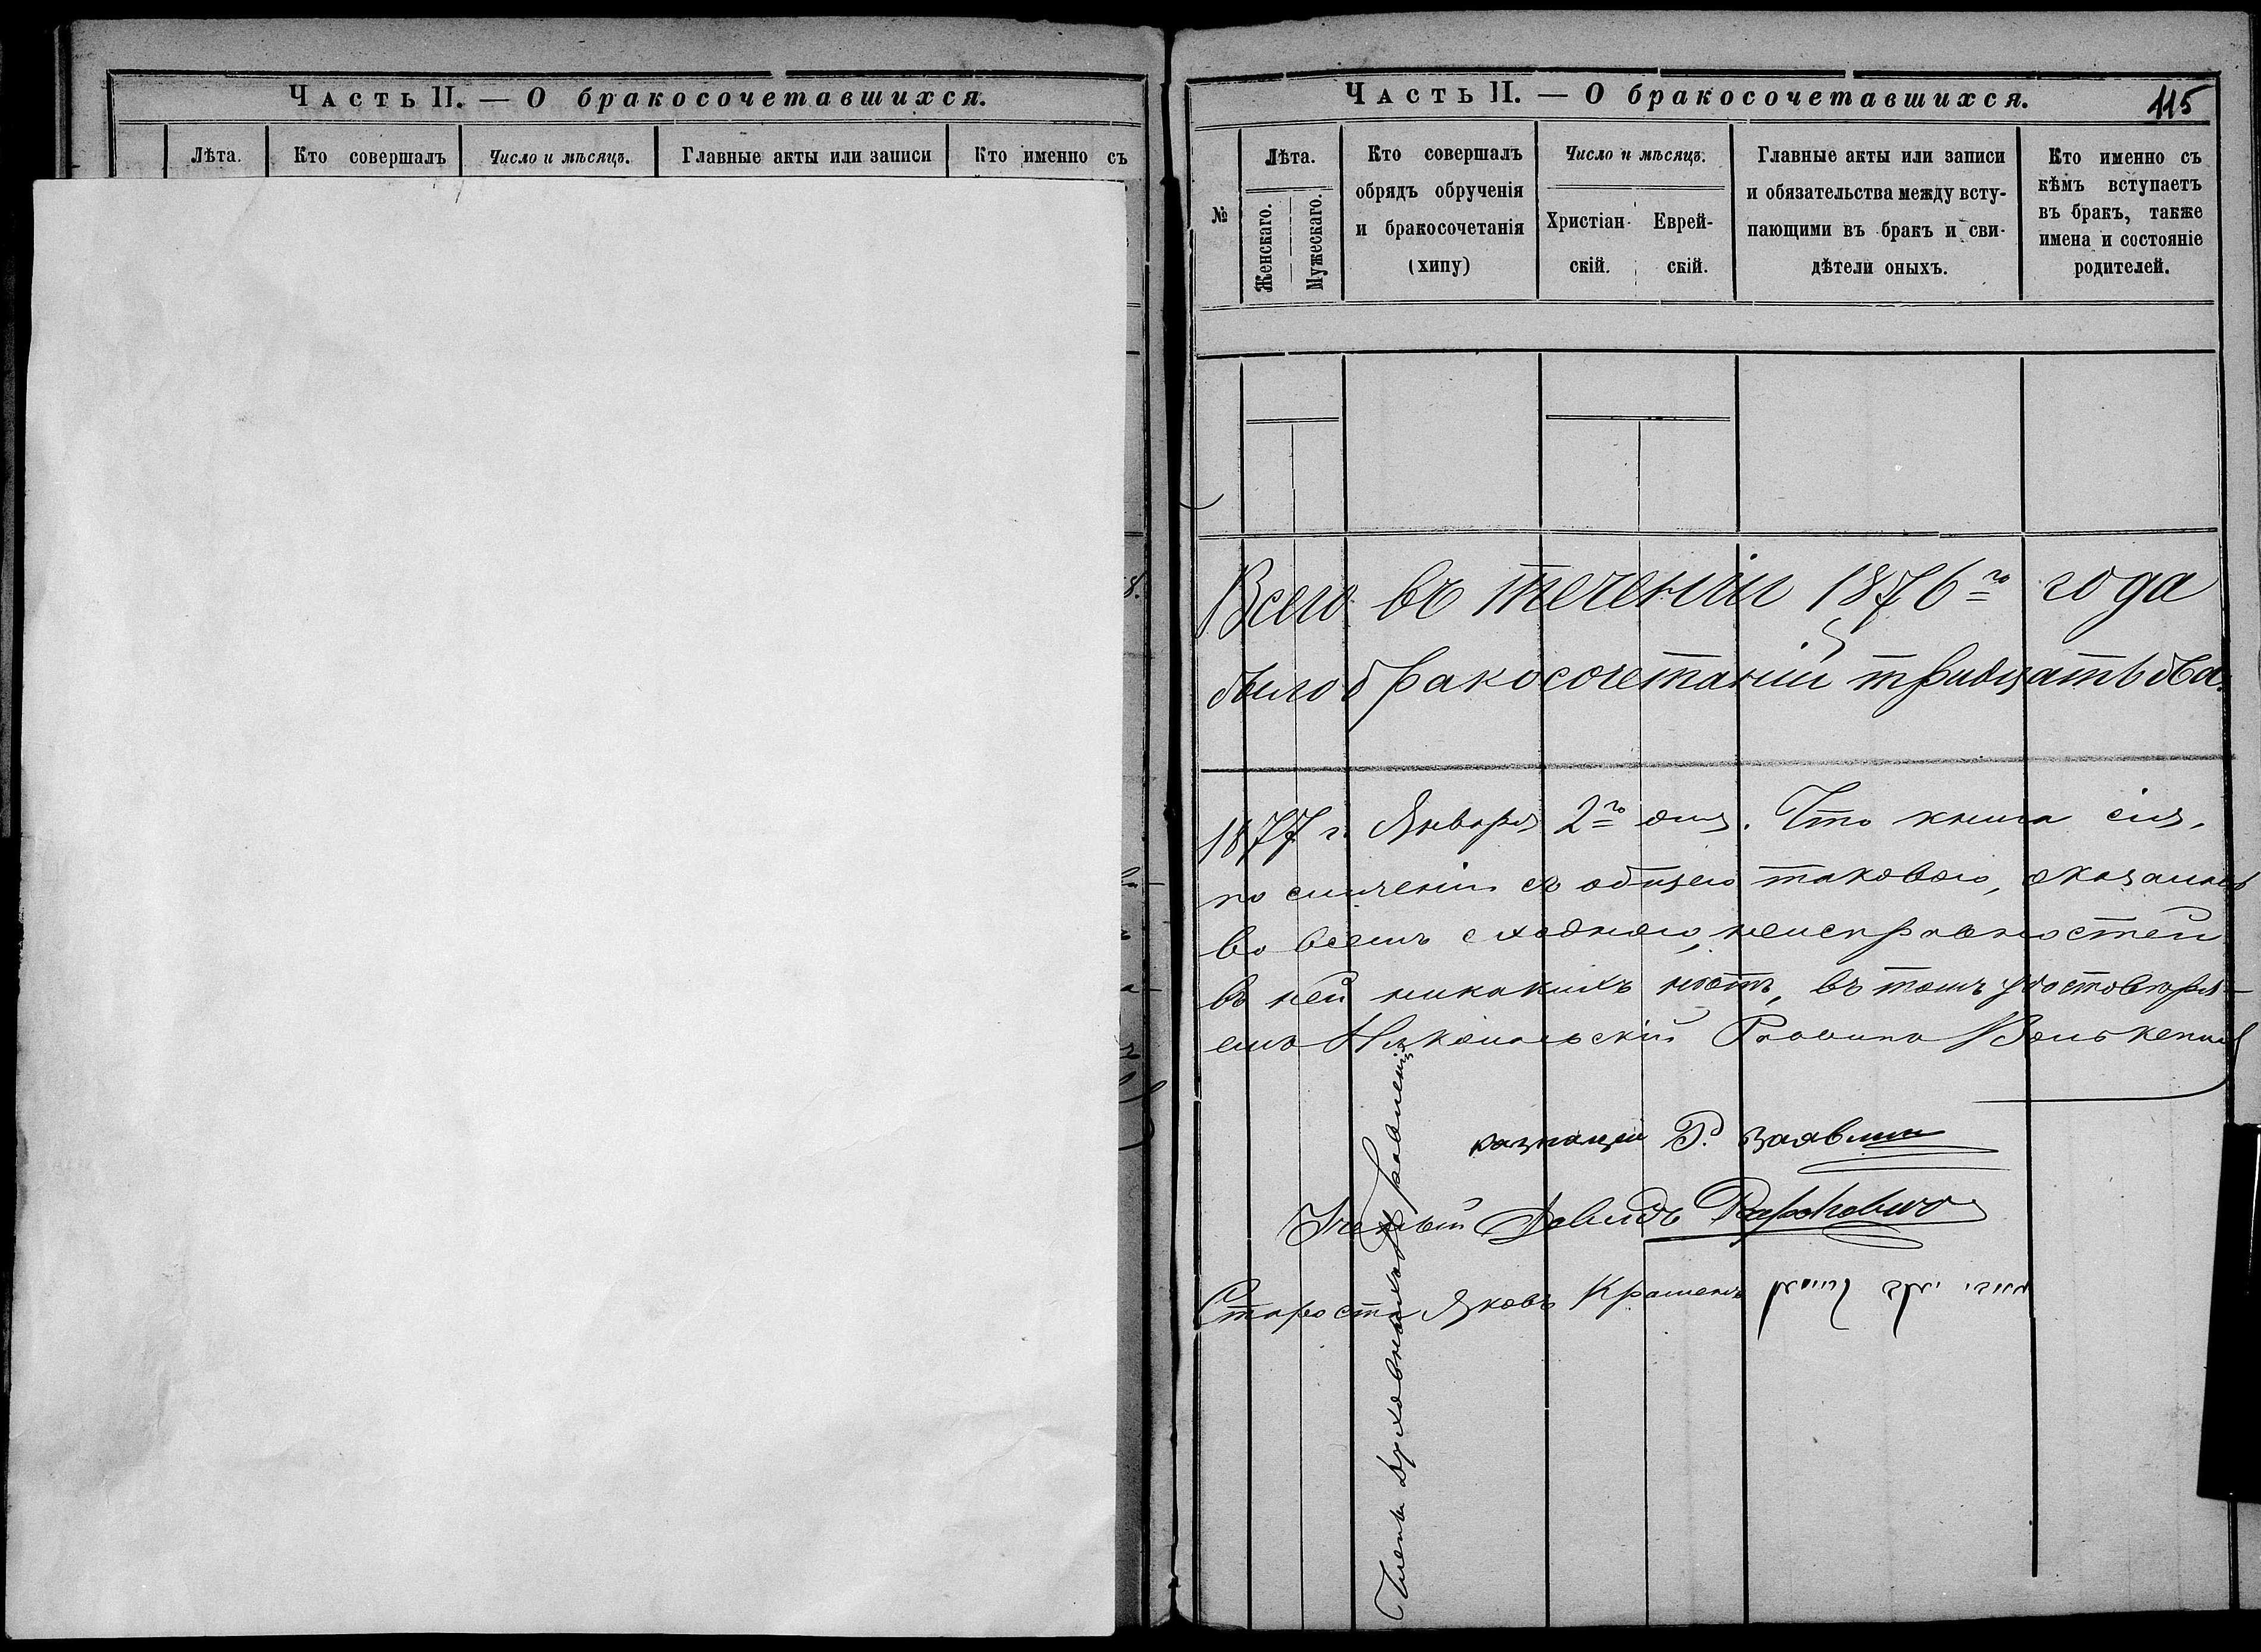 Часть II. — О бракосочетавшихся.
Лѣта. Кто совершалъ Число и мѣсяцъ. Главные акты или записи Кто именно съ
Часть II. — О бракосочетавшихся. 115
№
Лѣта.
Женскаго. Мужескаго.
Кто совершалъ
обрядъ обрученія
и бракосочетанія
(хипу)
Число и мѣсяцъ.
Христіан-
скій.
Еврей-
скій.
Главные акты или записи
и обязательства между всту-
пающими въ бракъ и сви-
дѣтели оныхъ.
Кто именно съ
кѣмъ вступаетъ
въ бракъ, также
имена и состояніе
родителей.
Всего въ теченіи 1876го года
было бракосочетаній тридцать два.
1877 г. Января 2го дня. Что книга сія,
по сличеніи съ общею таковою, оказалась
во всемъ сходною, неисправностей
въ ней никакихъ нѣтъ, въ томъ удостовѣря-
емъ Раввинъ
Члены духовнаго правленія
казначей Р.
Ученый Давидъ
Староста Яковъ